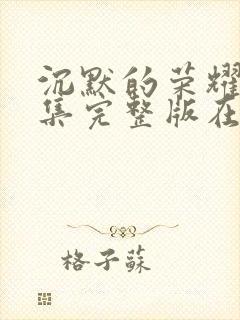 沉默的荣耀
集完整版在
格子蘇